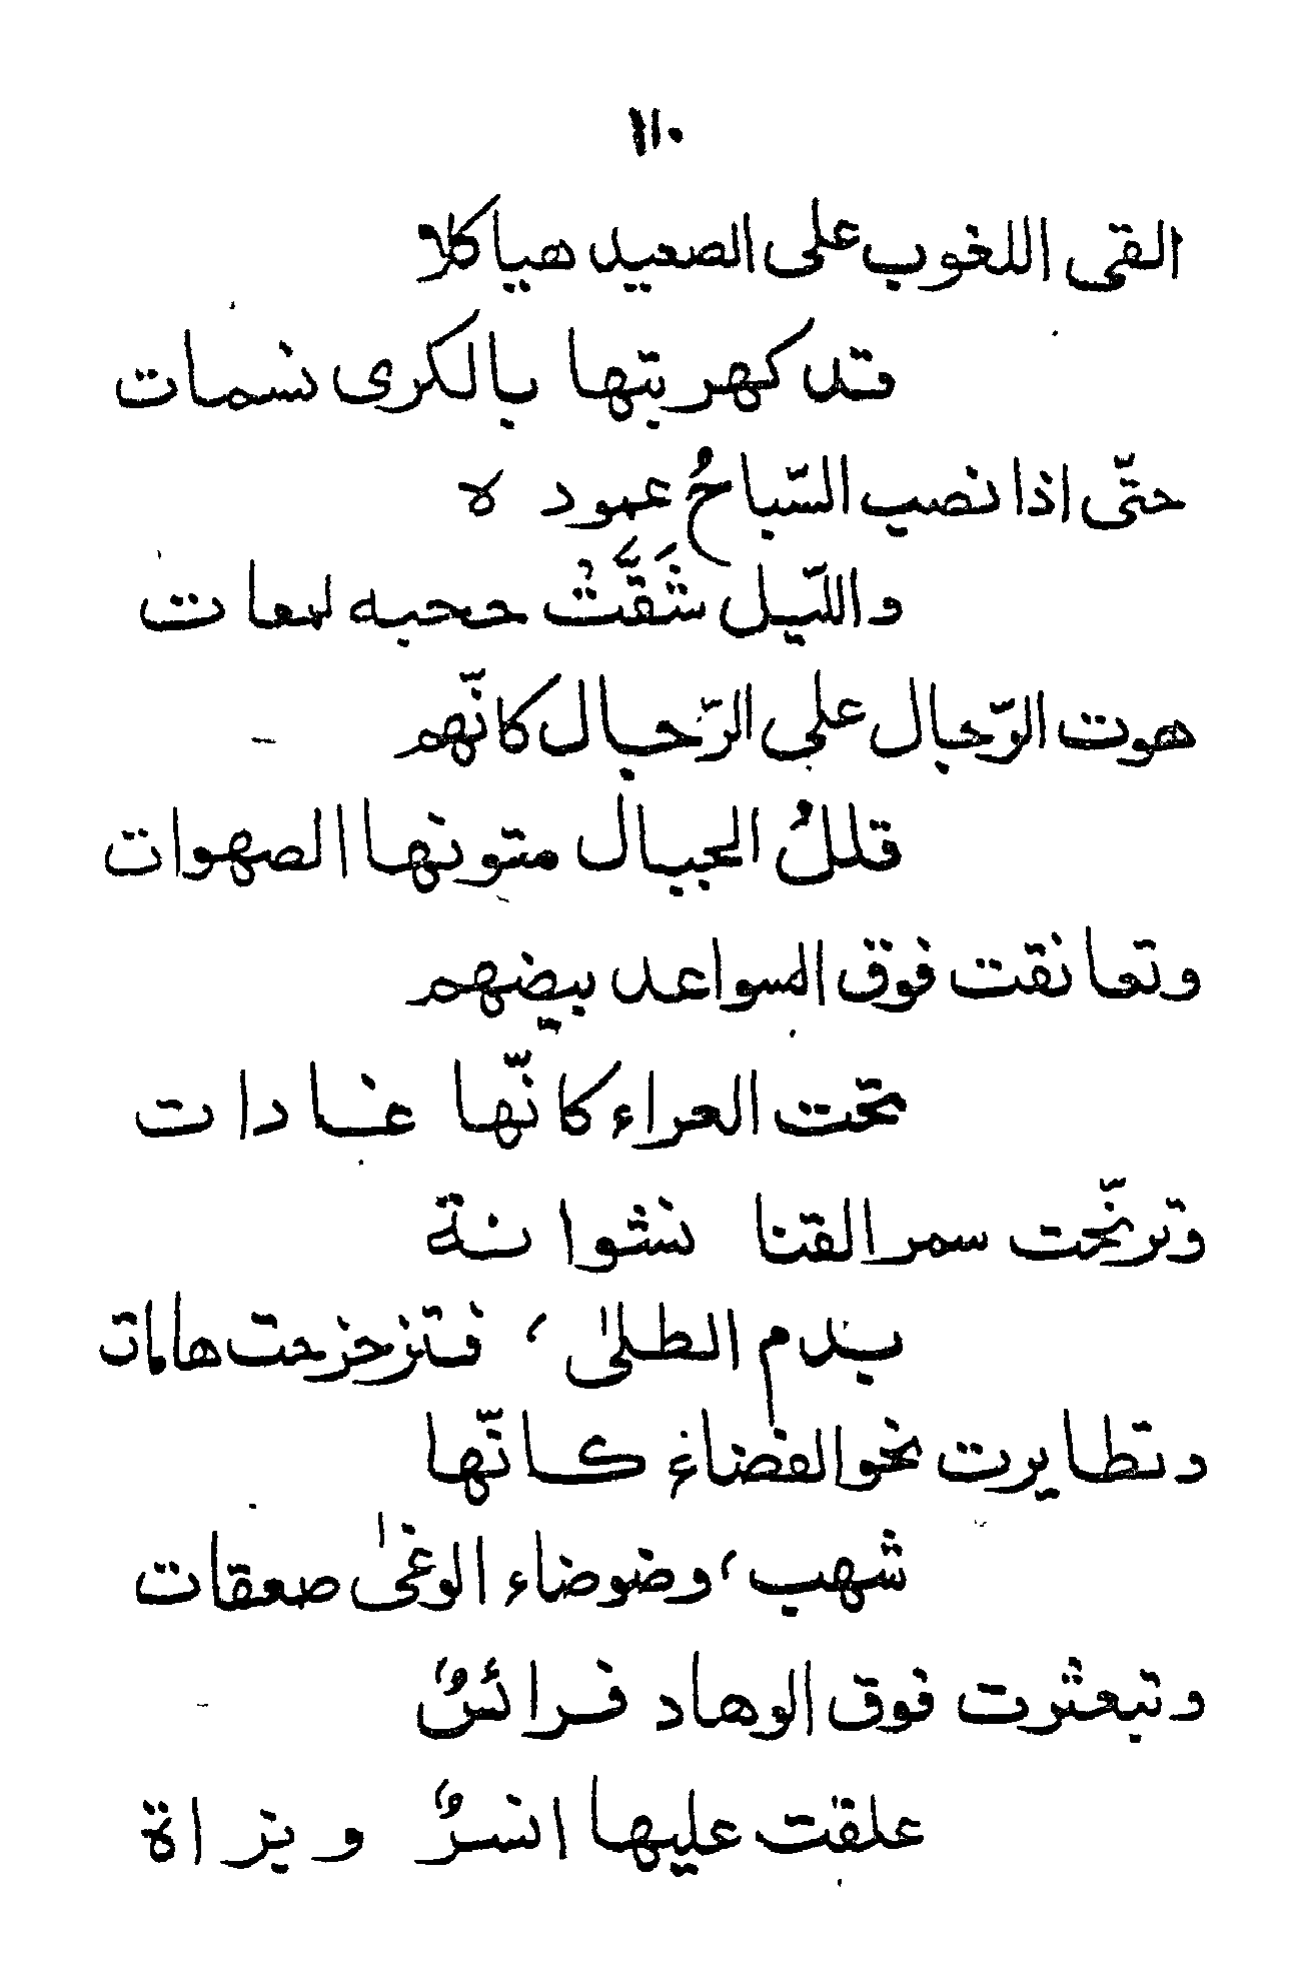 ١١٠
القى اللغوب على الصعيد هياكلا
قد كهربتها بالكرى نسمات
حتّى اذا نصب السّباحُ عموده
والليّل شَقَّتْ حجبه لمعات
هوت الرّجال على الرّجال كانّهم
قللُ الجبال متونها الصهوات
وتعانقت فوق السواعد بيضهم
تحت العراء كانّها غادات
وترنّحت سمر القنا نشوانة
بدم الطلىٰ ، فتزحزحت هامات
وتطايرت نحو الفضاء كانّها
شهب ، وضوضاء الوغىٰ صعقات
وتبعثرت فوق الوهاد فرائسٌ
علقت عليها انسرٌ وبزاة